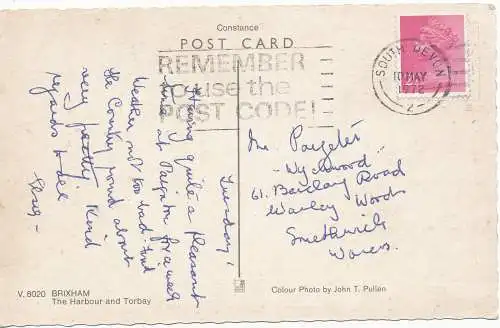 Constance
POST CARD
REMEMBER
to use the
POST CODE!
SOUTH DEVON
10 MAY
1972
Tuesday
Having quite a pleasant
time at Paignton for a week
Weather not too bad find
the Country round about
very pretty Kind
regards to all
The Pargeter
"Wychwood"
61. Barclay Road
Warley Woods
Smethwick
Worcs.
V. 8020 BRIXHAM
The Harbour and Torbay
Colour Photo by John T. Pullen